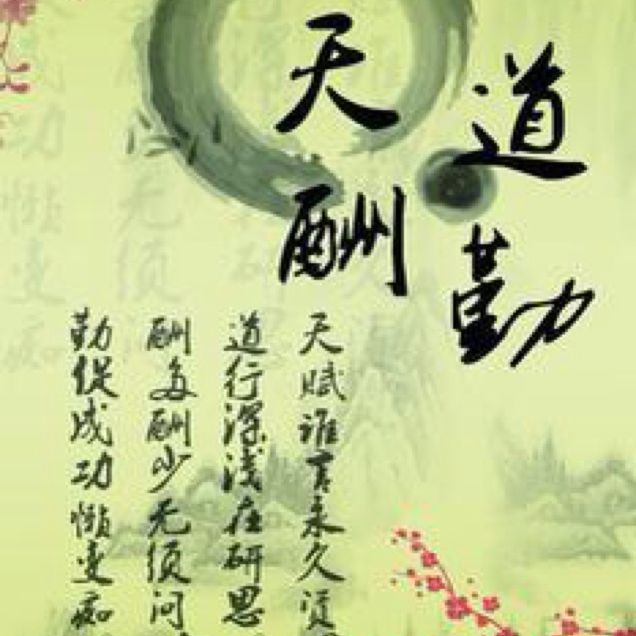 天道酬勤
天赋谁言永久
道行深浅在研思
酬多酬少无须问
勤促成功懒变痴